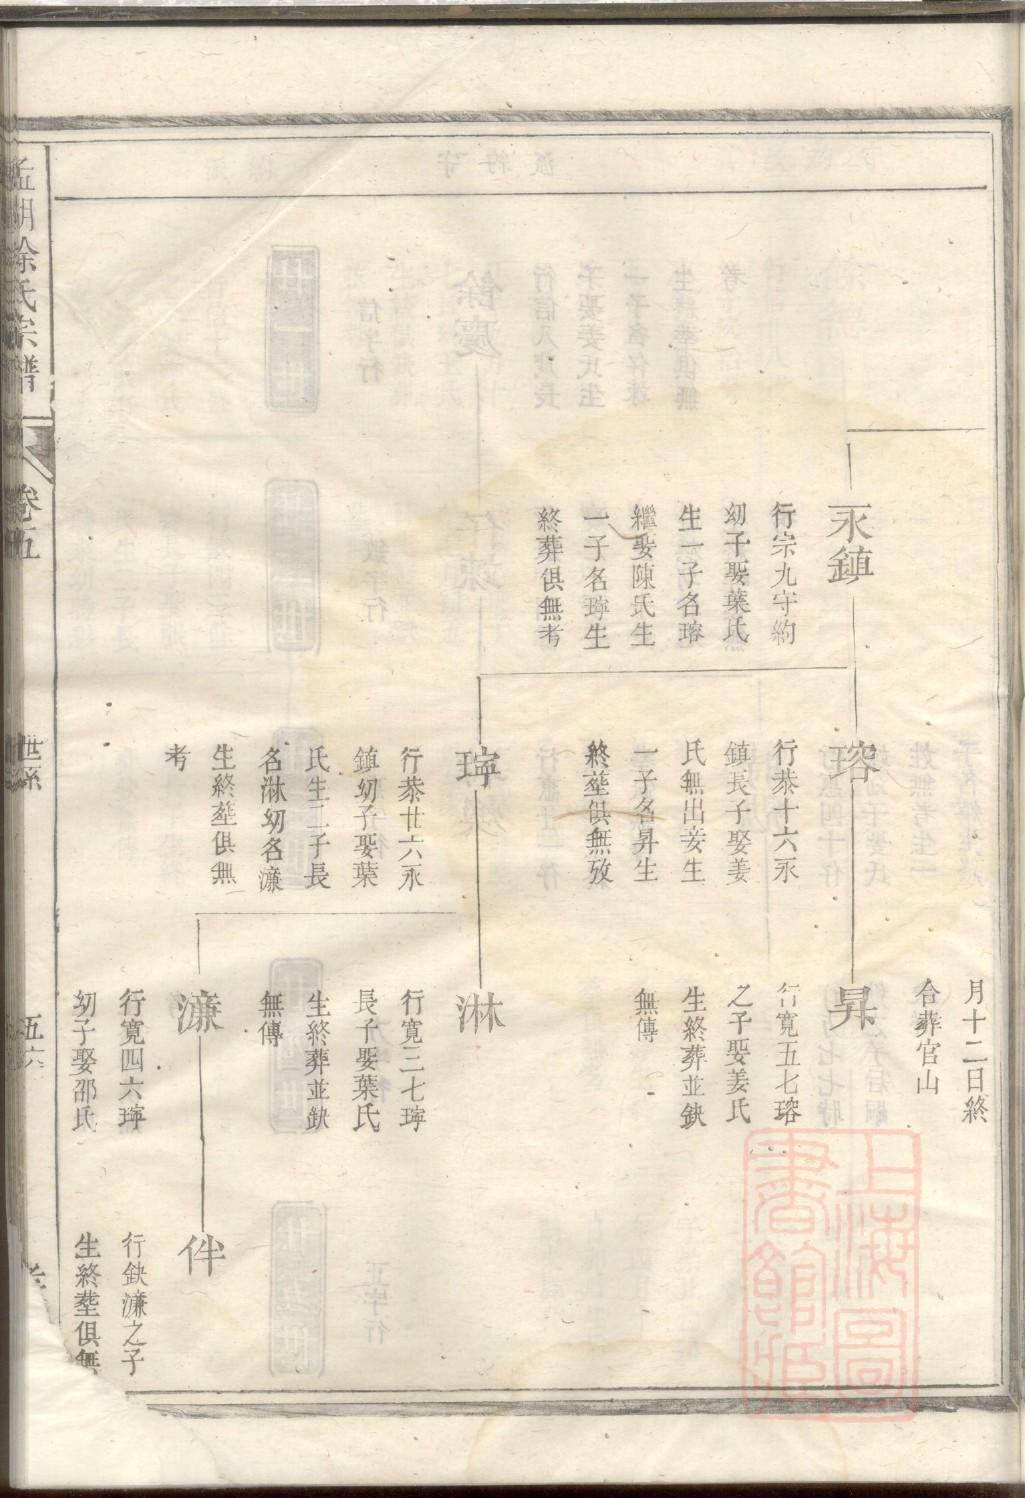 月十二日終
合葬官山
永鎮
行宗九守約
幼子娶葉氏
生一子名瑢
繼娶陳氏生
一子名㻎生
終葬俱無考
瑢
行恭十六永
鎮長子娶姜
氏無出妾生
一子名昇生
終塟俱無攷
昇
行寬五七瑢
之子娶姜氏
生終葬並缺
無傳
㻎
行恭廿六永
鎮幼子娶葉
氏生二子長
名淋幼名濂
生終塟俱無
考
淋
行寬三七㻎
長子娶葉氏
生終葬並缺
無傳
濂
行寬四六㻎
幼子娶邵氏
伴
行缺濂之子
生終塟俱無
湖徐氏宗譜
卷五
世系
五六
上海圖書館藏